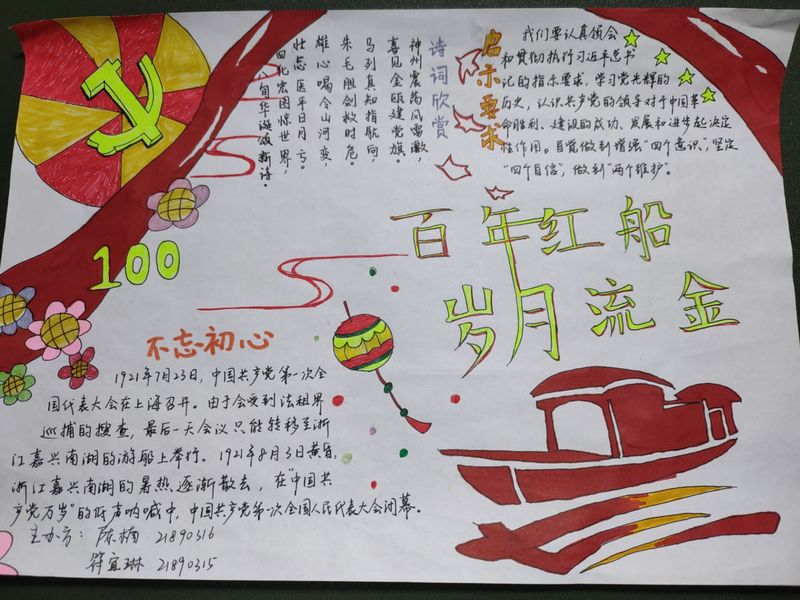 诗词欣赏
神州震荡风雷激，
喜见金瓯建党旗。
马列真知指航向，
朱毛胆剑救时危。
雄心喝令山河变，
壮志医平日月亏。
四化宏图惊世界，
八旬华诞颂新诗。
启示要求
我们要认真领会
和贯彻执行习近平总书
记的指示要求，学习党光辉的
历史，认识共产党的领导对于中国革
命胜利、建设的成功、发展和进步起决定
性作用。自觉做到增强“四个意识”，坚定
“四个自信”，做到“两个维护”。
100
百年红船
岁月流金
不忘初心
1921年7月23日，中国共产党第一次全
国代表大会在上海召开。由于会受到法租界
巡捕的搜查，最后一天会议只能转移至浙
江嘉兴南湖的游船上举行。1921年8月3日黄昏，
浙江嘉兴南湖的暑热逐渐散去，在“中国共
产党万岁”的低声呐喊中，中国共产党第一次全国人民代表大会闭幕。
主办方：陈楠 21890316
符宜琳 21890315